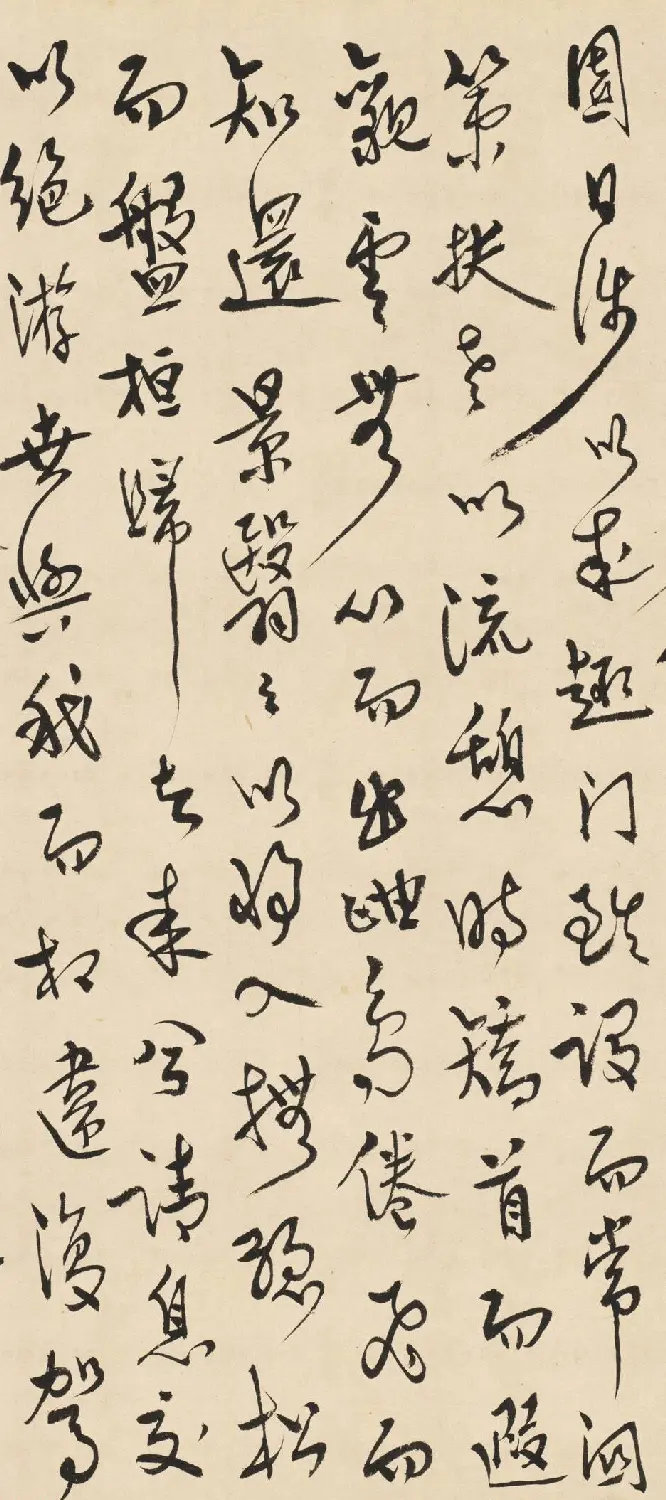 園日涉以成趣門雖設而常關
策扶老以流憩時矯首而遐
觀雲無心而出岫鳥倦飛而
知還景翳〻以將入撫孤松
而盤桓歸去來兮請息交
以絕游世與我而相違復駕